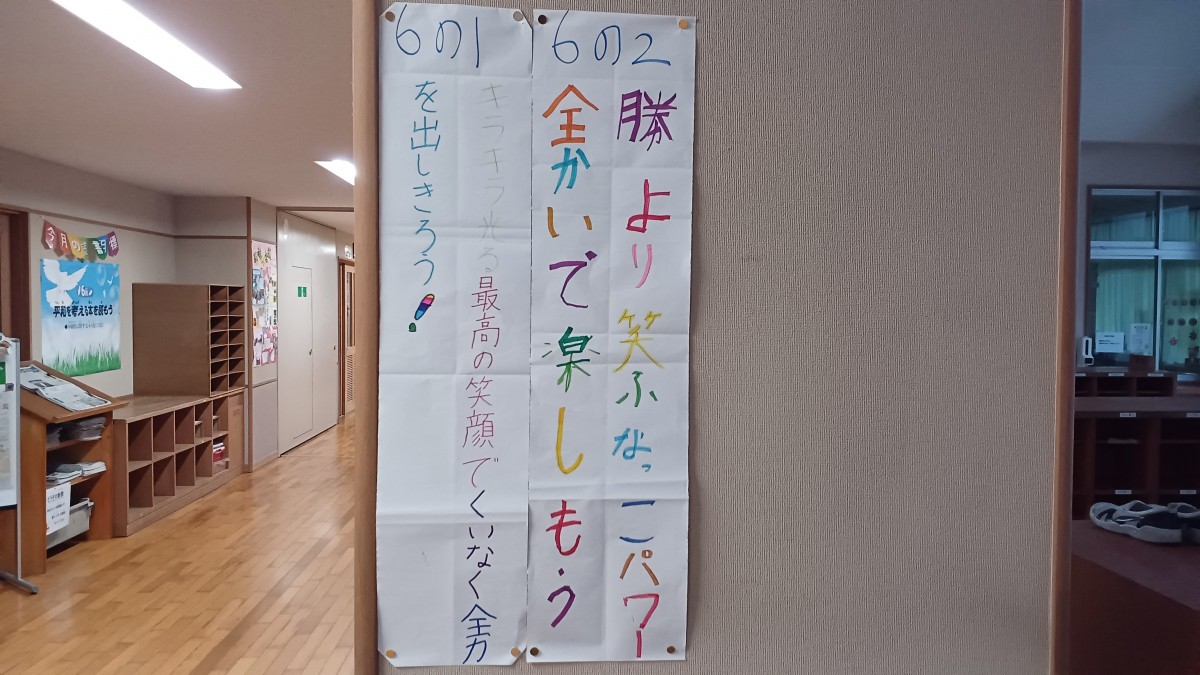 6の2
勝より笑ふなっこパワー
全かいで楽しもう
6の1
キラキラ光る最高の笑顔でくいなく全力
を出しきろう!
平和を考える本を読もう